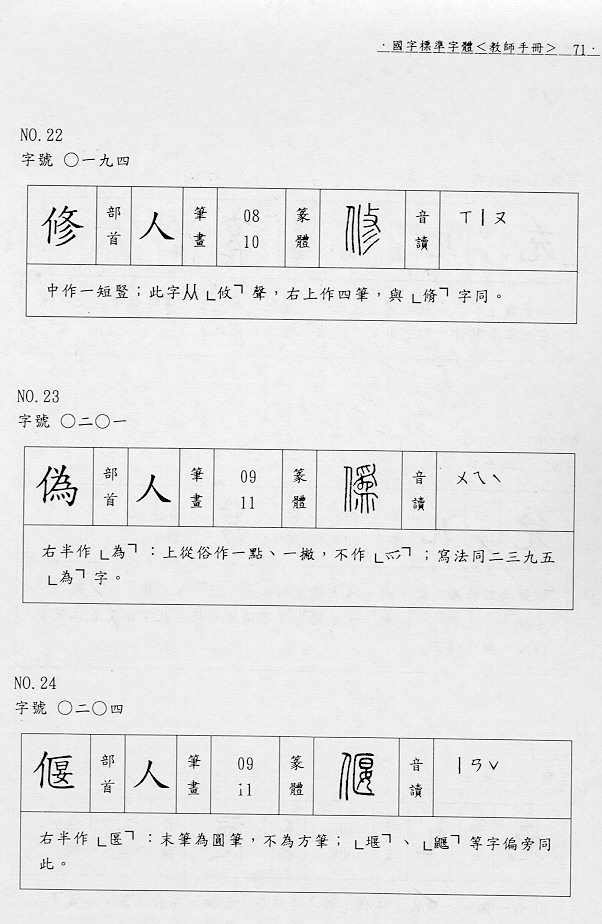 ·國字標準字體＜教師手冊＞ 71·
NO.22
字號 ○一九四
修 部首 人 筆畫 08 10 篆體 音讀 ㄒㄧㄡ
中作一短豎；此字从「攸」聲，右上作四筆，與「脩」字同。
NO.23
字號 ○二○一
偽 部首 人 筆畫 09 11 篆體 音讀 ㄨㄟˋ
右半作「為」：上從俗作一點、一撇，不作「爫」；寫法同二三九五
「為」字。
NO.24
字號 ○二○四
偃 部首 人 筆畫 09 i1 篆體 音讀 ㄧㄢˇ
右半作「匽」：末筆為圓筆，不為方筆；「堰」、「鼴」等字偏旁同
此。